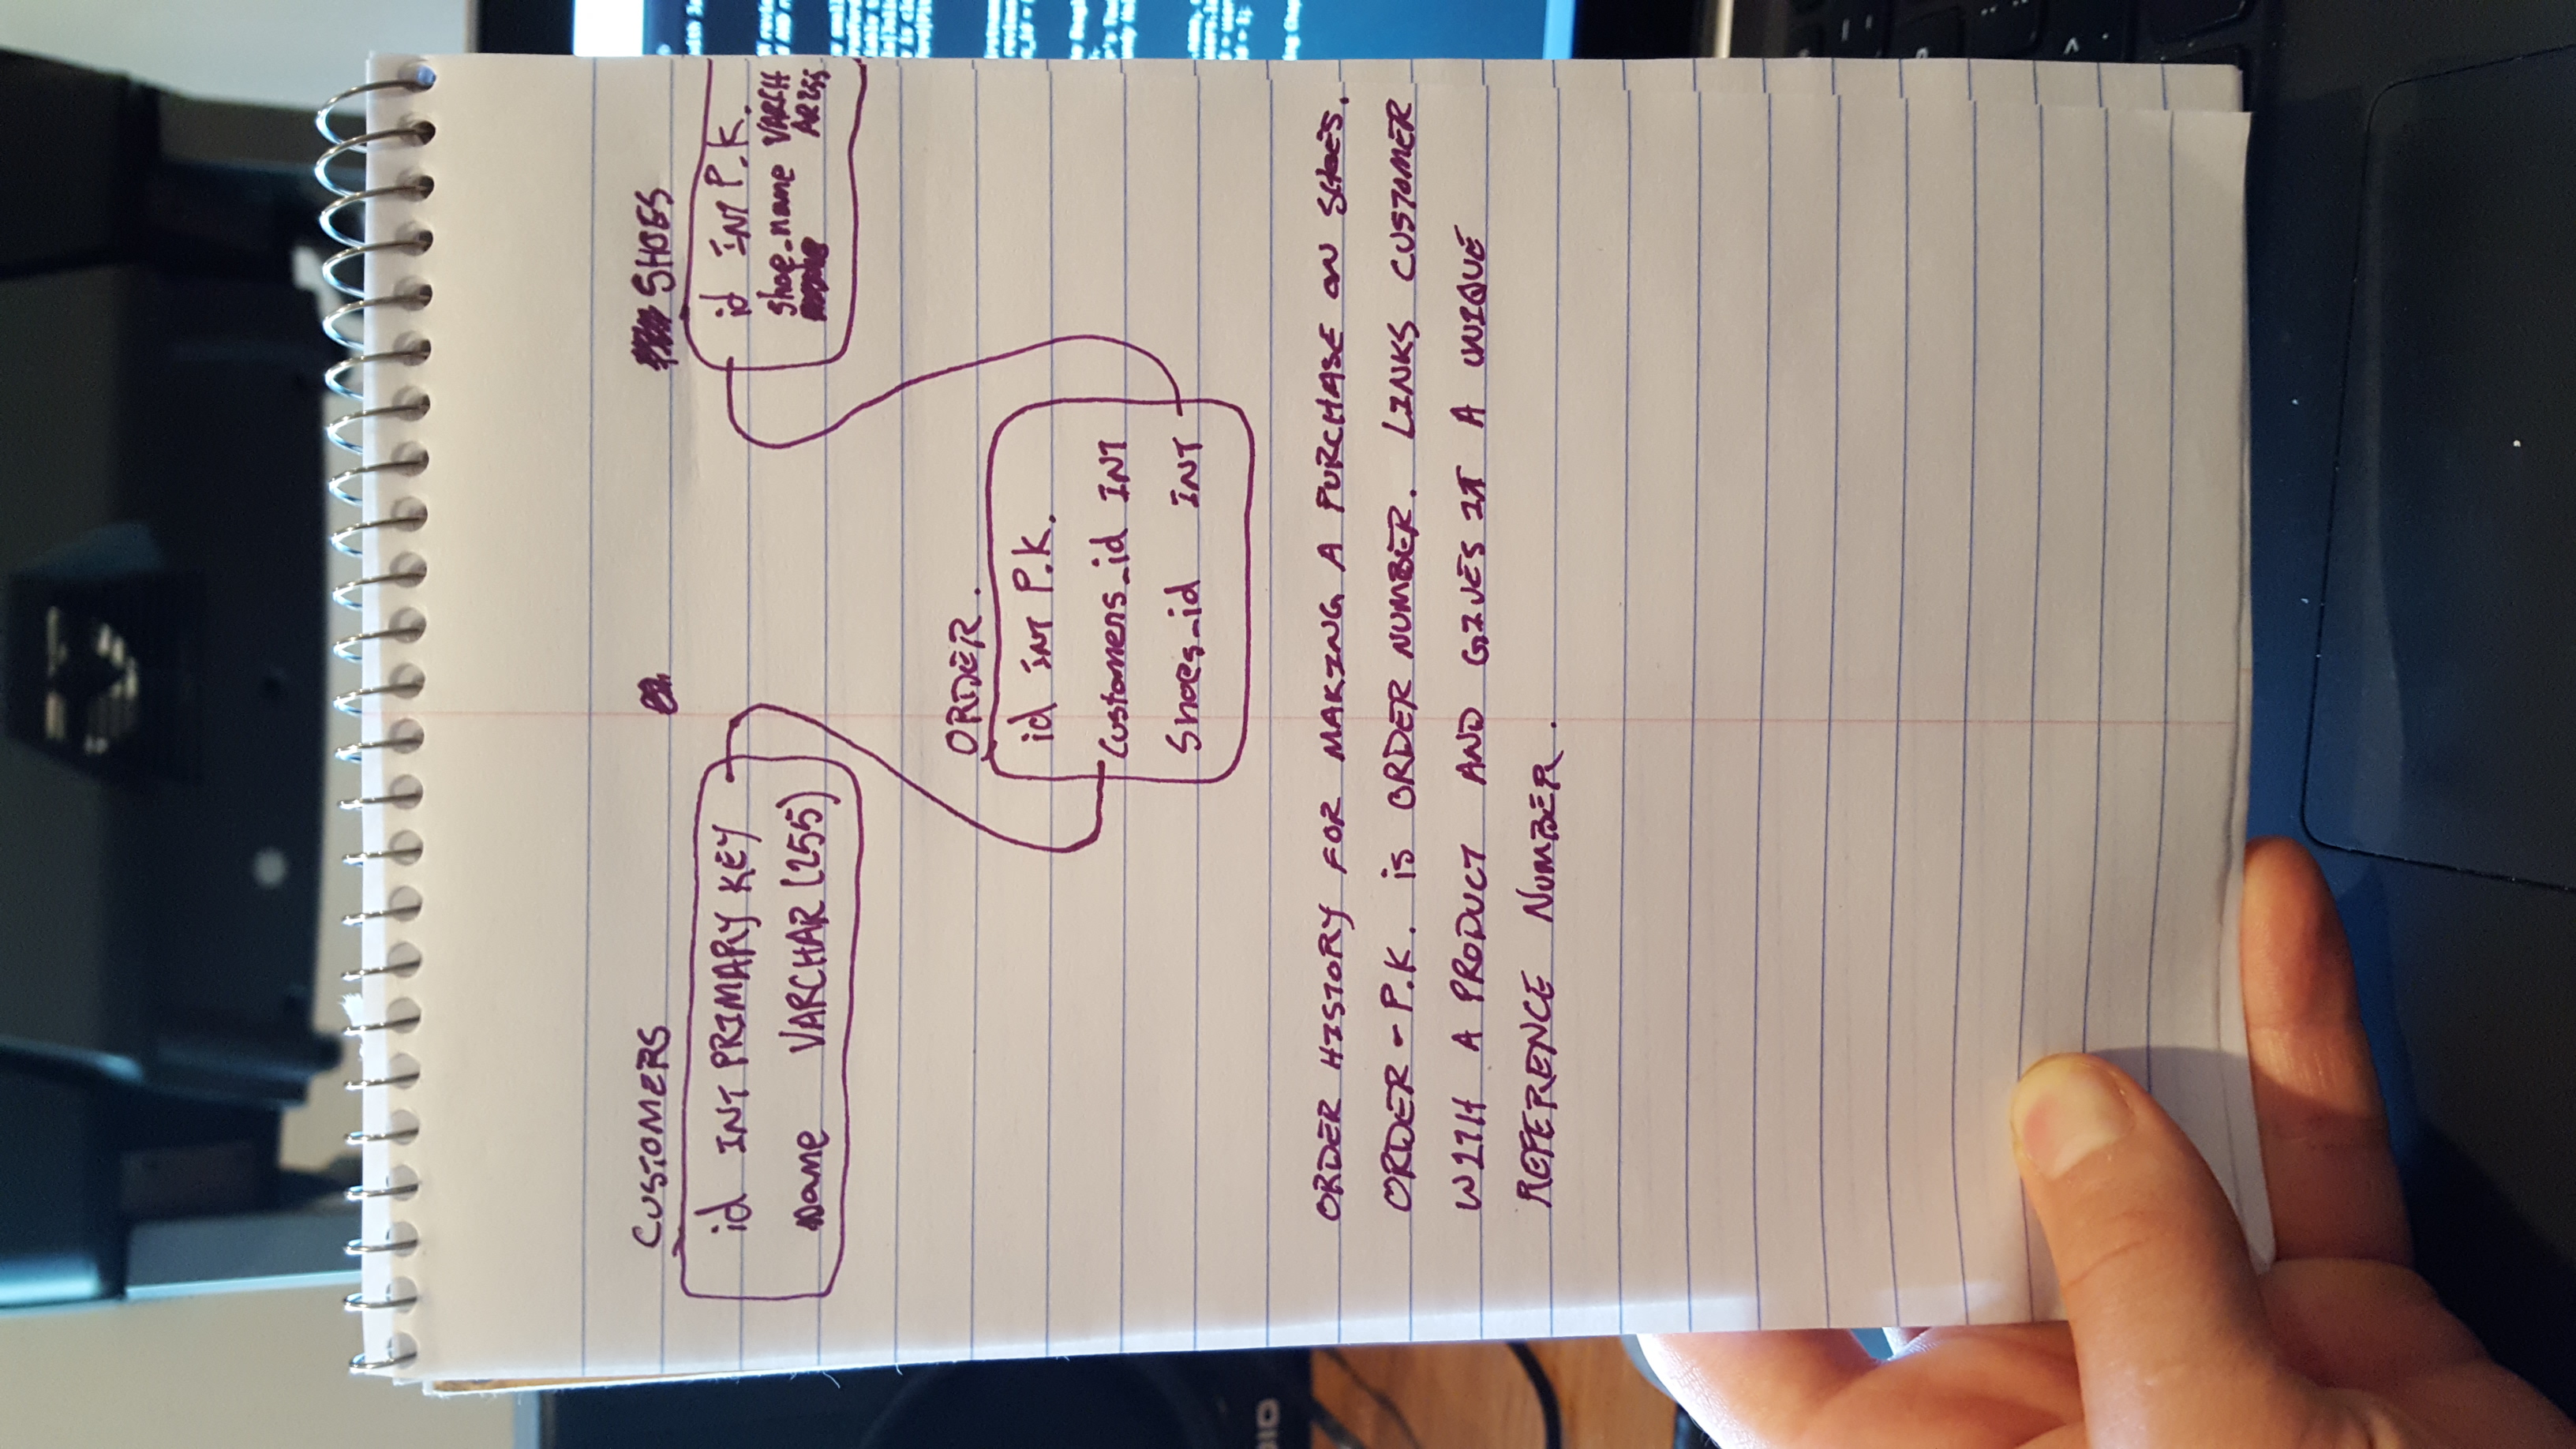 CUSTOMERS
SHOES
id INT PRIMARY KEY
name VARCHAR (255)
id INT P.K.
shoe_name VARCH
AR255
ORDER.
id INT P.K.
Customers_id INT
Shoes_id INT
ORDER HISTORY FOR MAKING A PURCHASE ON SHOES.
ORDER - P.K. is ORDER NUMBER. LINKS CUSTOMER
WITH A PRODUCT AND GIVES IT A UNIQUE
REFERENCE NUMBER.